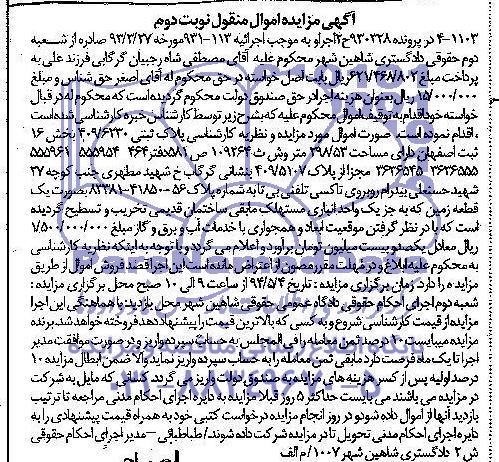 آگهی مزایده اموال منقول نوبت دوم
۴-۱۱۰۳ در پرونده ۹۳۰۳۲۸ح۲اجرا و به موجب اجرائیه ۱۱۳-۹۳۱مورخه ۹۳/۳/۲۷ صادره از شعبه
دوم حقوقی دادگستری شاهین شهر محکوم علیه آقای مصطفی شاه رجبیان گرگابی فرزند علی به
پرداخت مبلغ ۶۲۱/۴۶۸/۸۰۲ریال بابت اصل خواسته در حق محکوم له آقای اصغر حق شناس و مبلغ
۱۵/۰۰۰/۰۰۰ ریال بعنوان هزینه اجرا در حق صندوق دولت محکوم گردیده است که محکوم له در قبال
خواسته خود اقدام به توقیف اموال محکوم علیه که بشرح زیر توسط کارشناس خبره کارشناسی شده است
، اقدام نموده است. صورت اموال مورد مزایده و نظریه کارشناسی پلاک ثبتی ۴۰۹/۶۲۳۰ بخش ۱۶
ثبت اصفهان دارای مساحت ۳۹۸/۵۳ متر وش ث ۱۰۹۲۶۴ ص ۵۸۱دفتر۴۶۴ ۵۵۵۹۵۴ ۵۵۵۹۶۱
۳۶۳۶۵۵۵ ۳۶۳۶۵۴۵ مجزا از پلاک ۴۰۹/۵۱۰۷ بنشانی گرگاب خ شهید مطهری جنب کوچه ۳۷
شهید حسنعلی بیدرام روبروی تاکسی تلفنی بی تا به شماره پلاک ۵۶ -۴۱۸۵۰-۸۳۳۸۱ بصورت یک
قطعه زمین که به جز یک واحد انباری مستهلک مابقی ساختمان قدیمی تخریب و تسطیح گردیده
است که با در نظر گرفتن موقعیت ابعاد و همجواری با خدمات آب و برق و گاز مبلغ ۱/۵۰۰/۰۰۰/۰۰۰
ریال معادل یکصدو بیست میلیون تومان برآورد و اعلام می گردد و با توجه به اینکه نظریه کارشناسی
به محکوم علیه ابلاغ و در مهلت مقرر مصون از اعتراض مانده است این اجرا قصد فروش اموال از طریق
مزایده را دارد زمان برگزاری مزایده : تاریخ ۹۴/۵/۴ از ساعت ۹ الی ۱۰ صبح محل برگزاری مزایده :
شعبه دوم اجرای احکام حقوقی دادگاه عمومی حقوقی شاهین شهر محل بازدید: با هماهنگی این اجرا
مزایده از قیمت کارشناسی شروع و به کسی که بالاترین قیمت را پیشنهاد دهد فروخته خواهد شد.برنده
مزایده میبایست ۱۰ درصد ثمن معامله را فی المجلس به حساب سپرده واریز و در صورت موافقت مدیر
اجرا تا یک ماه فرصت دارد مابقی ثمن معامله را به حساب سپرده واریز نماید والا ضمن ابطال مزایده ۱۰
درصد اولیه پس از کسر هزینه های مزایده به صندوق دولت واریز می گردد. کسانی که مایل به شرکت
در مزایده می باشند می بایست حداکثر ۵ روز قبل از مزایده به دایره اجرای احکام مدنی مراجعه تا ترتیب
بازدید آنها از اموال داده شود و در روز انجام مزایده درخواست کتبی خود به همراه قیمت پیشنهادی را به
دایره اجرای احکام مدنی تحویل تا در مزایده شرکت داده شوند/ طباطبائی - مدیر اجرای احکام حقوقی
ش ۲ دادگستری شاهین شهر ۱۰۰۷/م الف